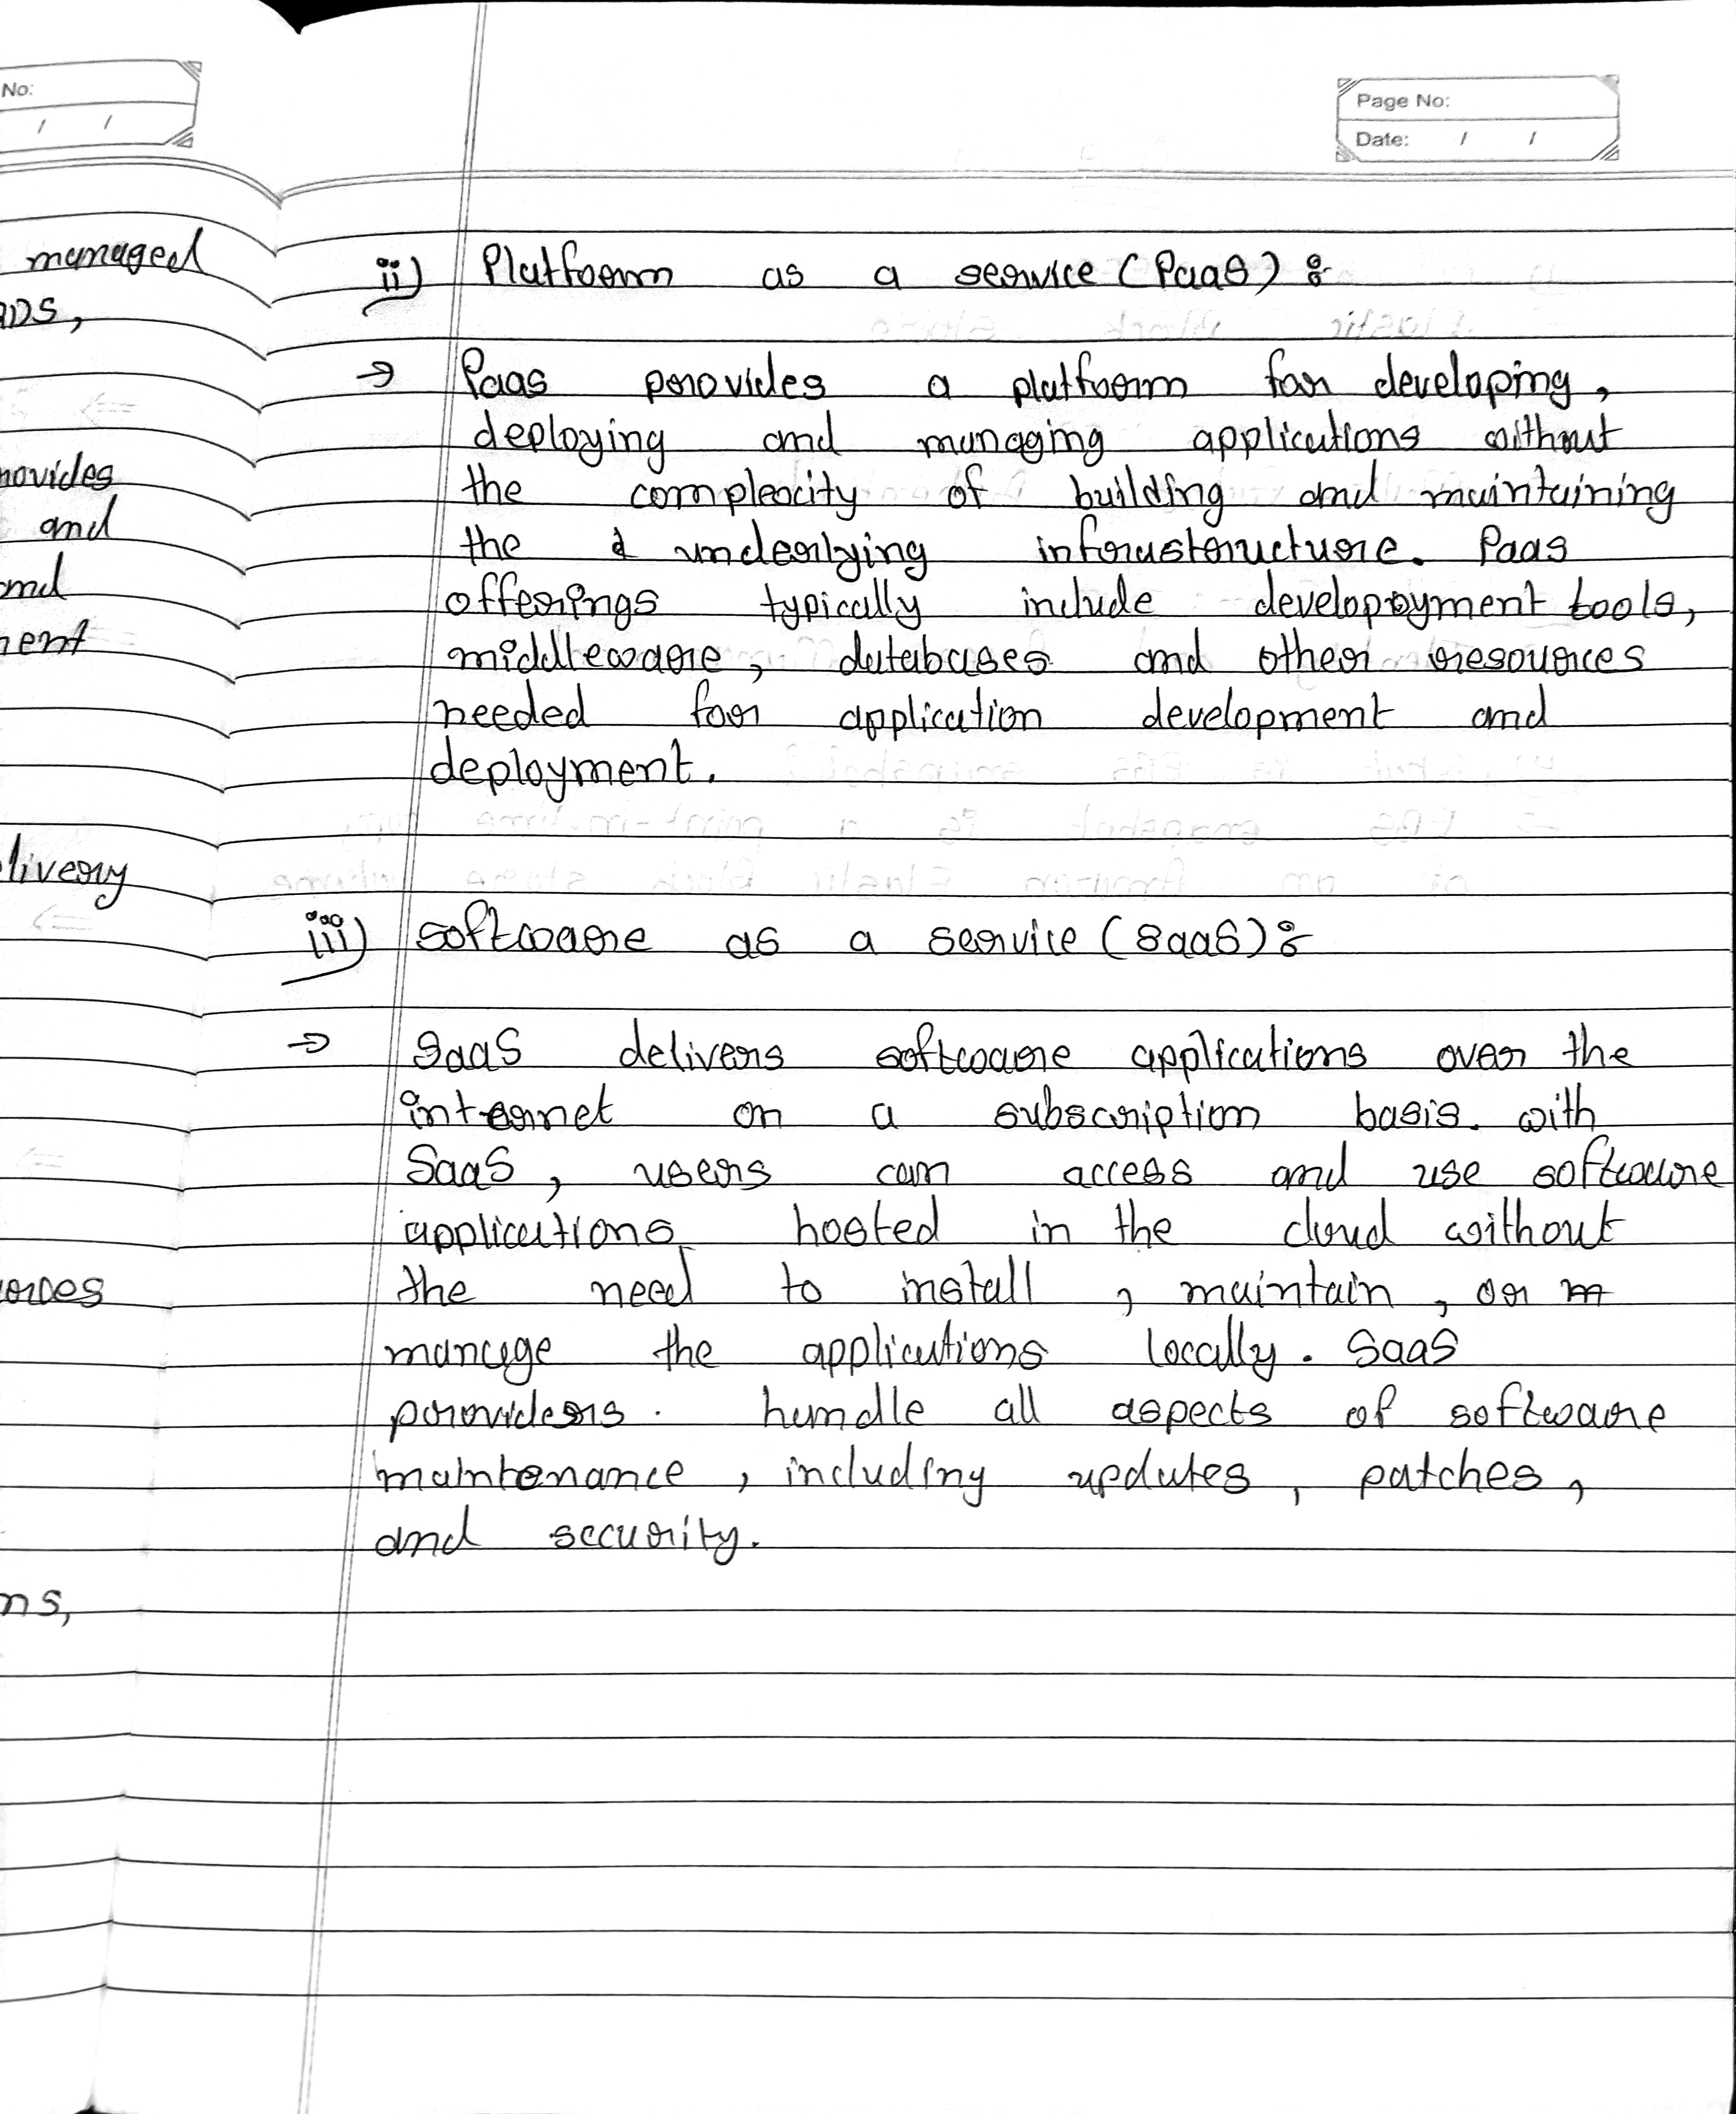 No:
/ /
Page No:
Date: / /
managed
and
livery
ii) Platform as a service (PaaS) :
→ Paas provides a platform for developing,
deploying and managing applications without
the complexity of building and maintaining
the underlying infrastructure. Paas
offerings typically include developoyment tools,
middleware, databases and other resources
needed for application development and
deployment.
iii) software as a service (SaaS) :
→ SaaS delivers software applications over the
internet on a subscription basis. with
SaaS, users can access and use software
applications hosted in the cloud without
the need to install, maintain, or m
manage the applications locally. SaaS
providers. handle all aspects of software
maintenance, including updates, patches,
and security.